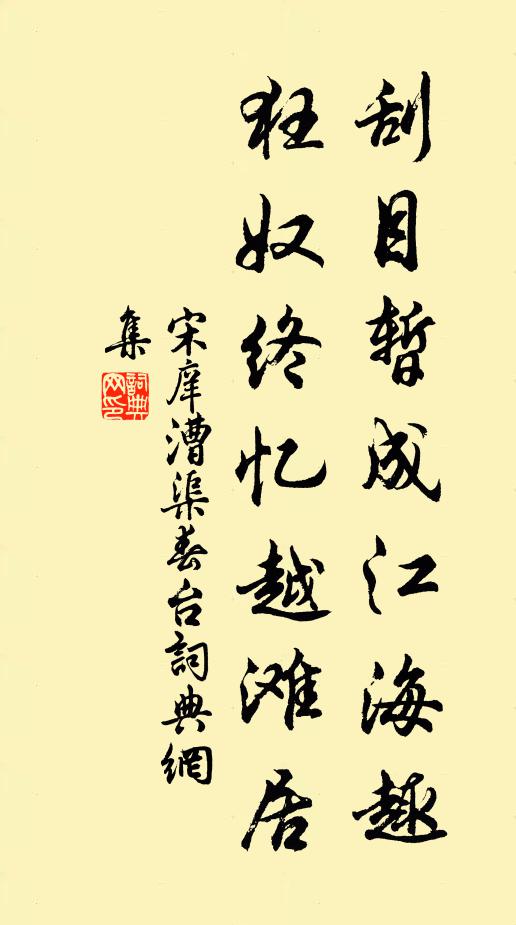 刮目暂成江海趣
狂奴终忆越滩居
宋庠漕渠春台詞典網
集
詞典
网印